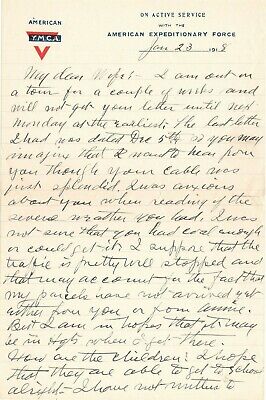 AMERICAN
Y.M.C.A.
ON ACTIVE SERVICE
WITH THE
AMERICAN EXPEDITIONARY FORCE
Jan 23 1918
My dear Wife:- I am out on
a tour for a couple of weeks and
will not get your letter until next
Monday at the earliest. The last letter
I had was dated Dec 5th so you may
imagine that I want to hear from
you though your cable was
just splendid. I was anxious
about you when reading of the
severe weather you had. I was
not sure that you had coal enough
or could get it. I suppose that the
traffic is pretty well stopped and
that may account for the fact that
my parcels have not arrived yet
either from you or from
But I am in hopes that it may
be in Hqs when I get there.
How are the children? I hope
that they are able to get to school
alright - I have not written to